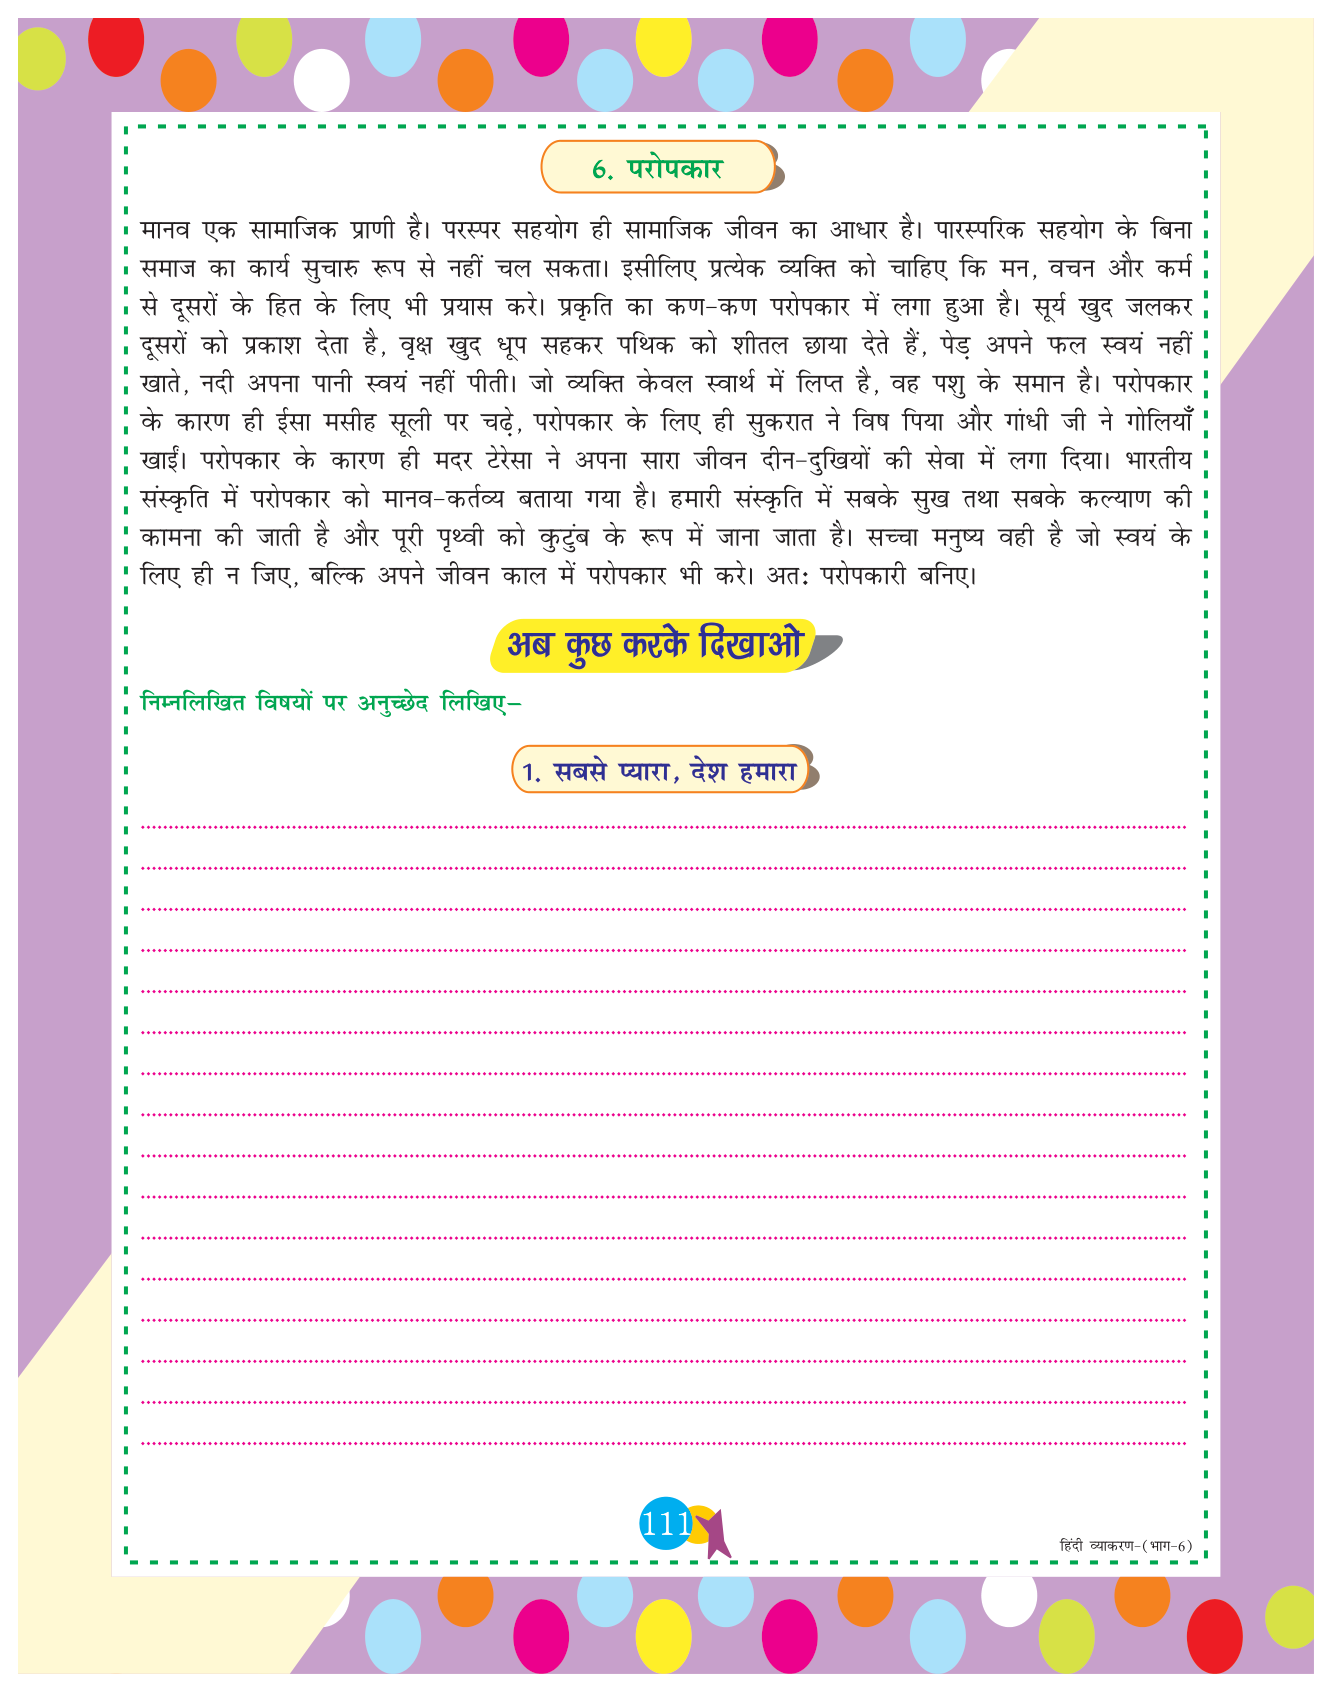 6. परोपकार
मानव एक सामाजिक प्राणी है। परस्पर सहयोग ही सामाजिक जीवन का आधार है। पारस्परिक सहयोग के बिना
समाज का कार्य सुचारु रूप से नहीं चल सकता। इसीलिए प्रत्येक व्यक्ति को चाहिए कि मन, वचन और कर्म
से दूसरों के हित के लिए भी प्रयास करे। प्रकृति का कण-कण परोपकार में लगा हुआ है। सूर्य खुद जलकर
दूसरों को प्रकाश देता है, वृक्ष खुद धूप सहकर पथिक को शीतल छाया देते हैं, पेड़ अपने फल स्वयं नहीं
खाते, नदी अपना पानी स्वयं नहीं पीती। जो व्यक्ति केवल स्वार्थ में लिप्त है, वह पशु के समान है। परोपकार
के कारण ही ईसा मसीह सूली पर चढ़े, परोपकार के लिए ही सुकरात ने विष पिया और गांधी जी ने गोलियाँ
खाईं। परोपकार के कारण ही मदर टेरेसा ने अपना सारा जीवन दीन-दुखियों की सेवा में लगा दिया। भारतीय
संस्कृति में परोपकार को मानव-कर्तव्य बताया गया है। हमारी संस्कृति में सबके सुख तथा सबके कल्याण की
कामना की जाती है और पूरी पृथ्वी को कुटुंब के रूप में जाना जाता है। सच्चा मनुष्य वही है जो स्वयं के
लिए ही न जिए, बल्कि अपने जीवन काल में परोपकार भी करे। अतः परोपकारी बनिए।
अब कुछ करके दिखाओ
निम्नलिखित विषयों पर अनुच्छेद लिखिए-
1. सबसे प्यारा, देश हमारा
111
हिंदी व्याकरण-(भाग-6)